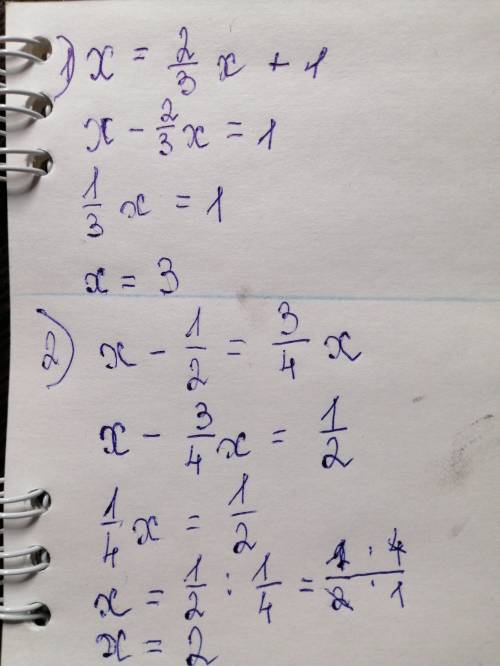 1) x = 2/3 x + 1
x - 2/3 x = 1
1/3 x = 1
x = 3
2) x - 1/2 = 3/4 x
x - 3/4 x = 1/2
1/4 x = 1/2
x = 1/2 : 1/4 = 1 · 4 / 2 · 1
x = 2